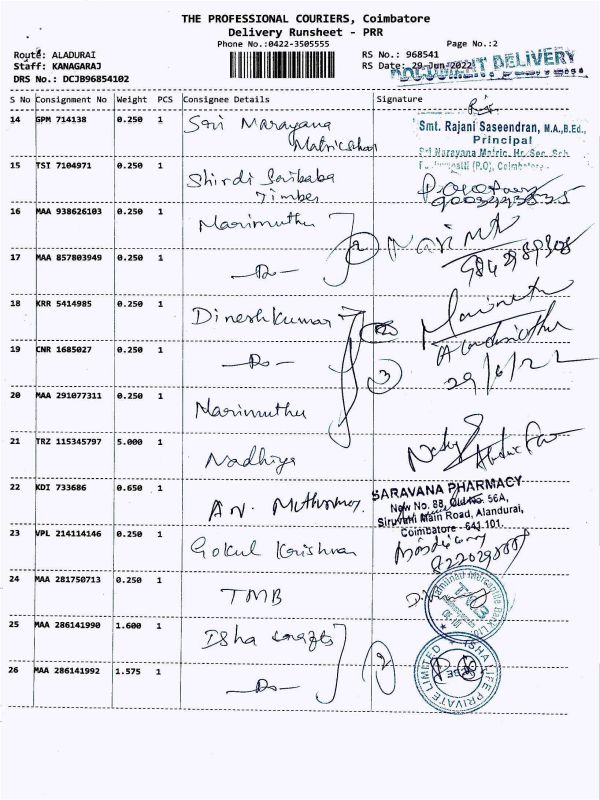 THE PROFESSIONAL COURIERS, Coimbatore
Delivery Runsheet - PRR
Phone No.:0422-3505555
Page No.:2
Route: ALADURAI
RS No.: 968541
Staff: KANAGARAJ
RS Date: 29-Jun-2022
DOCUMENT DELIVERY
DRS No.: DCJB96854102
S No Consignment No Weight PCS Consignee Details Signature
14 GPM 714138 0.250 1 Sri Narayana
Matric
Smt. Rajani Saseendran, M.A.,B.Ed.,
Principal
Sri Narayana Matric. Hr. Sec. Sch
(P.O), Coimbatore
15 TSI 7104971 0.250 1 Shirdi Saibaba
Timber
16 MAA 938626103 0.250 1 Marimuthu
2
17 MAA 857803949 0.250 1 -Do-
18 KRR 5414985 0.250 1 Dinesh Kumar
19 CNR 1685027 0.250 1 -Do- 3
29/6/22
20 MAA 291077311 0.250 1 Marimuthu
21 TRZ 115345797 5.000 1 Nadhiya
22 KDI 733686 0.650 1 AN.
SARAVANA PHARMACY
New No. 88, Old No. 56A,
Siruvani Main Road, Alandurai,
Coimbatore - 641 101.
23 VPL 214114146 0.250 1 Gokul Krishnan
24 MAA 281750713 0.250 1 TMB
Tamilnad Mercantile Bank Ltd
TMB
25 MAA 286141990 1.600 1 Isha crafts
2
26 MAA 286141992 1.575 1 -Do-
ISHA LIFE PRIVATE LIMITED